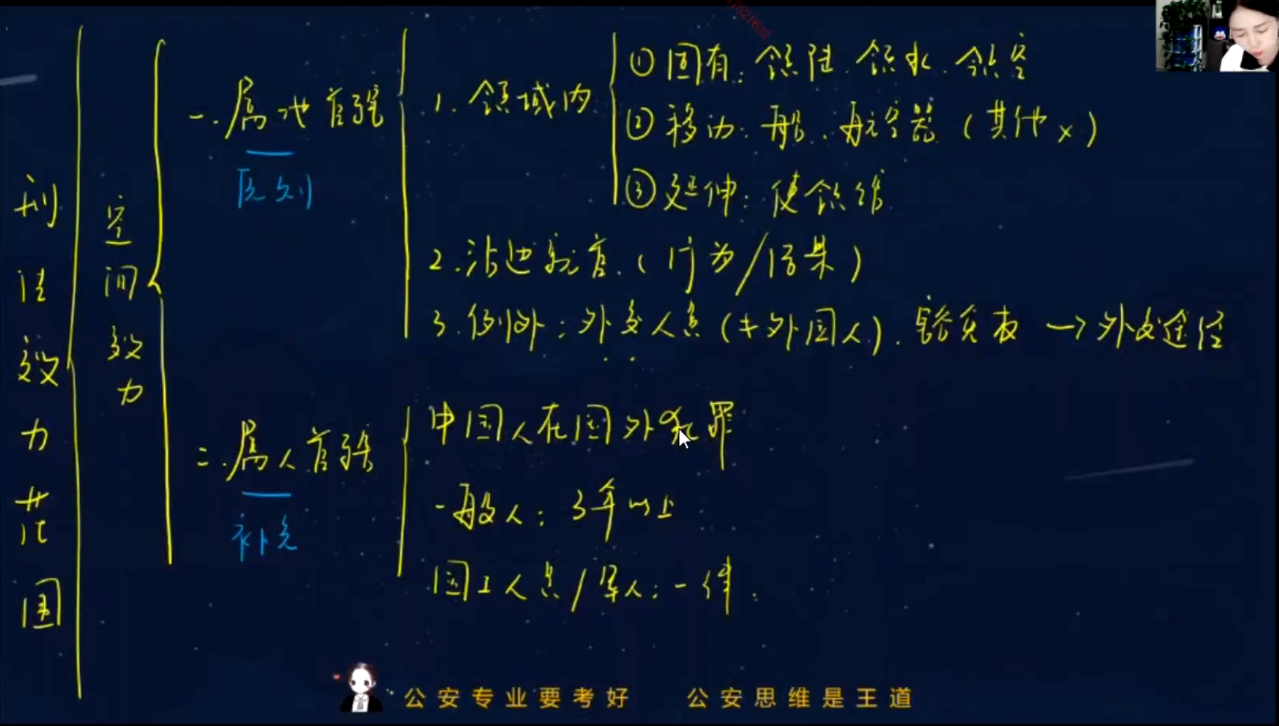 刑法效力范围
空间效力
一.属地管辖
原则
1.领域内
①固有:领陆.领水.领空
②移动:船、航空器(其他×)
③延伸:使领馆
2.沾边就管.(行为/结果)
3.例外:外交人员(≠外国人).豁免权→外交途径
二.属人管辖
补充
中国人在国外犯罪
一般人:3年以上
国工人员/军人:一律.
公安专业要考好 公安思维是王道